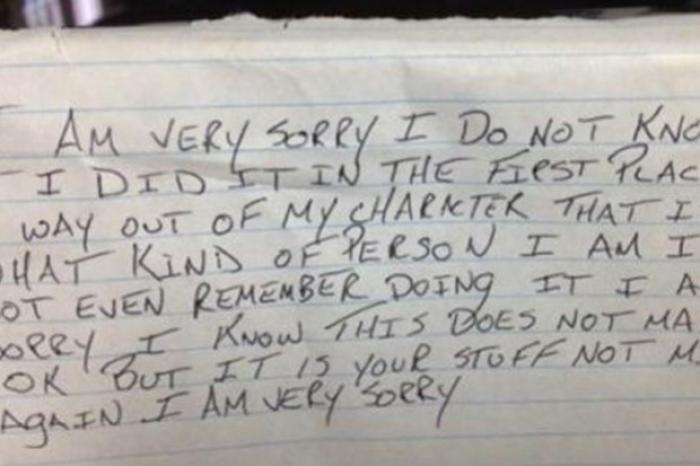 I AM VERY SORRY I DO NOT KNO
I DID IT IN THE FIRST PLAC
WAY OUT OF MY CHARICTER THAT I
HAT KIND OF PERSON I AM I
OT EVEN REMEMBER DOING IT I A
SORRY I KNOW THIS DOES NOT MA
OK BUT IT IS YOUR STUFF NOT M
AGAIN I AM VERY SORRY